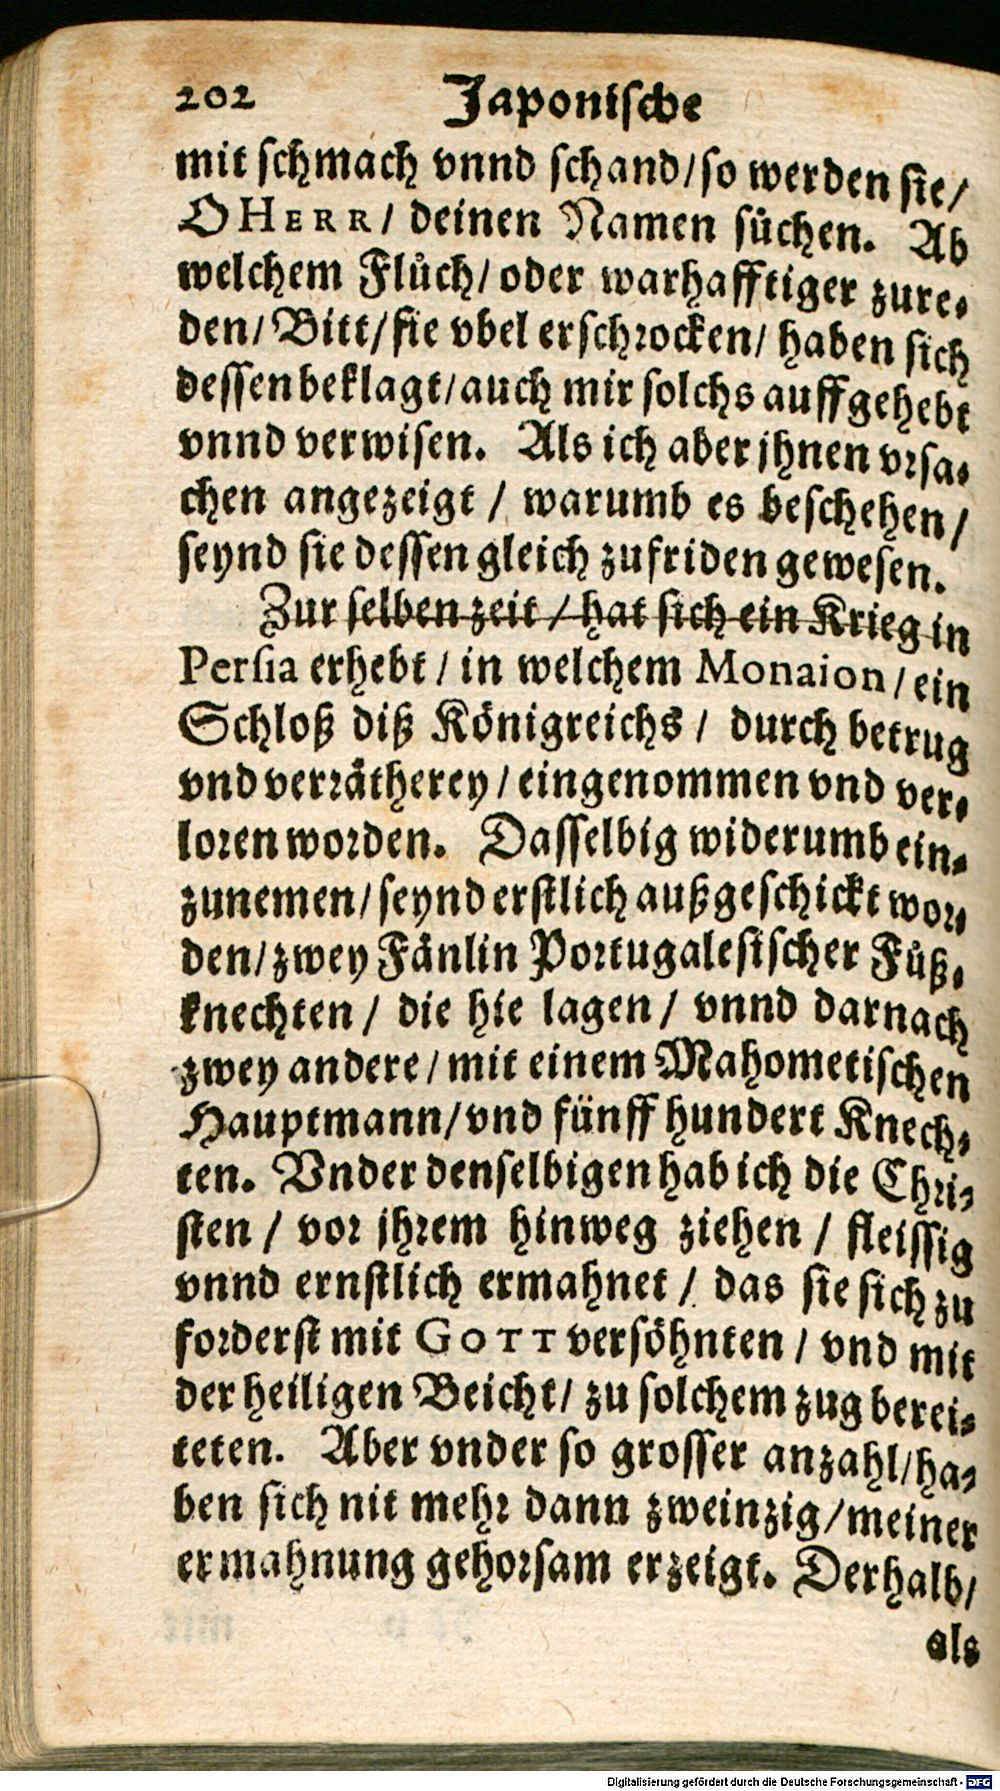 202 Japonische
mit schmach vnnd schand/so werden sie/
O HERR/ deinen Namen sůchen. Ab
welchem Flůch/ oder warhafftiger zure-
den/ Bitt/ sie vbel erschrocken/ haben sich
dessen beklagt/auch mir solchs auffgehebt
vnnd verwisen. Als ich aber jhnen vrsa-
chen angezeigt / warumb es beschehen/
seynd sie dessen gleich zufriden gewesen.
Zur selben zeit / hat sich ein Krieg in
Persia erhebt / in welchem Monaion / ein
Schloß diß Königreichs / durch betrug
vnd verrätherey / eingenommen vnd ver-
loren worden. Dasselbig widerumb ein-
zunemen/ seynd erstlich außgeschickt wor-
den/ zwey Fänlin Portugalesischer Fůß-
knechten / die hie lagen / vnnd darnach
zwey andere / mit einem Mahometischen
Hauptmann/ vnd fünff hundert Knech-
ten. Vnder denselbigen hab ich die Chri-
sten / vor jhrem hinweg ziehen / fleissig
vnnd ernstlich ermahnet / das sie sich zu
forderst mit GOTT versöhnten / vnd mit
der heiligen Beicht/ zu solchem zug berei-
teten. Aber vnder so grosser anzahl/ha-
ben sich nit mehr dann zweinzig/meiner
ermahnung gehorsam erzeigt. Derhalb/
als
Digitalisierung gefördert durch die Deutsche Forschungsgemeinschaft - DFG